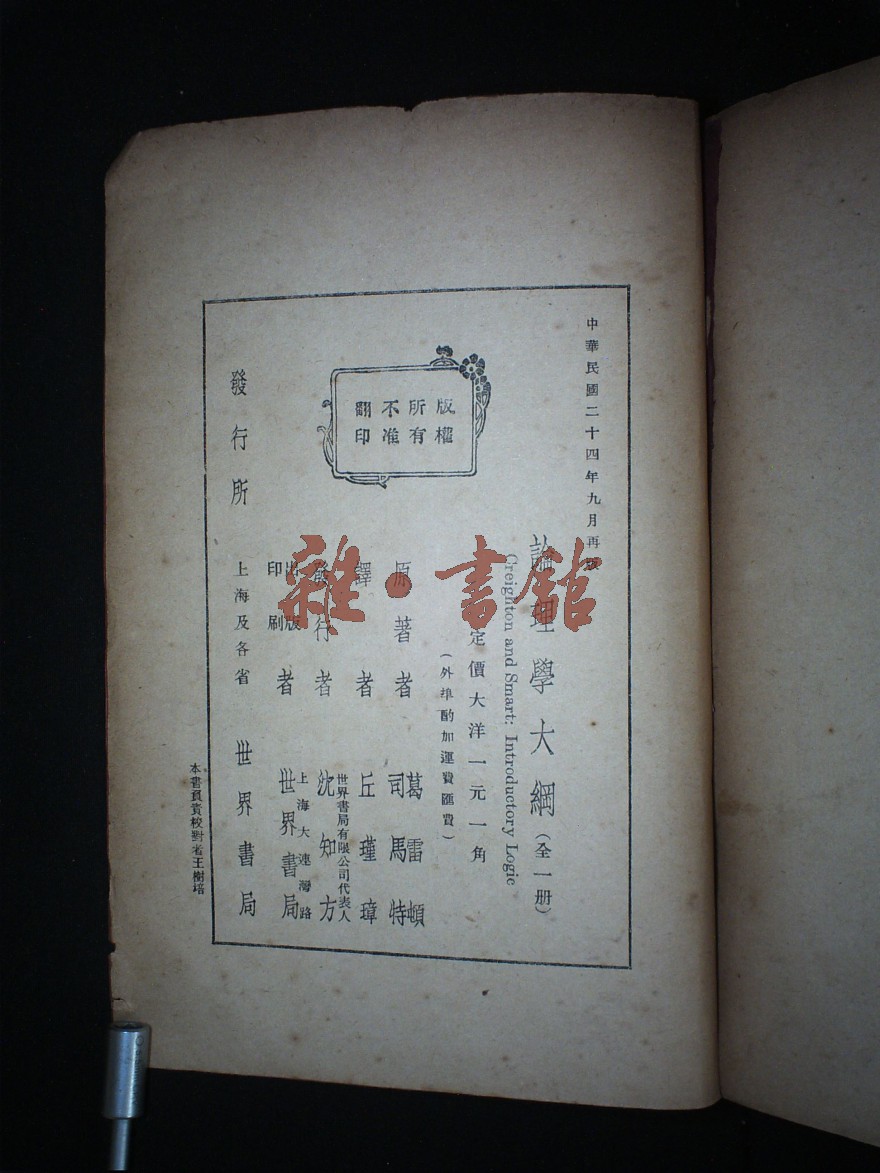 中華民國二十四年九月再版
論理學大綱(全一册)
Creighton and Smart: Introductory Logic
定價大洋一元一角
(外埠酌加運費匯費)
版權
所有
不准
翻印
原著者 葛雷頓 司馬特
譯者 丘瑾璋
發行者 世界書局有限公司代表人 沈知方
出版印刷者 上海大連灣路 世界書局
發行所 上海及各省 世界書局
本書負責校對者王樹培
雜·書館